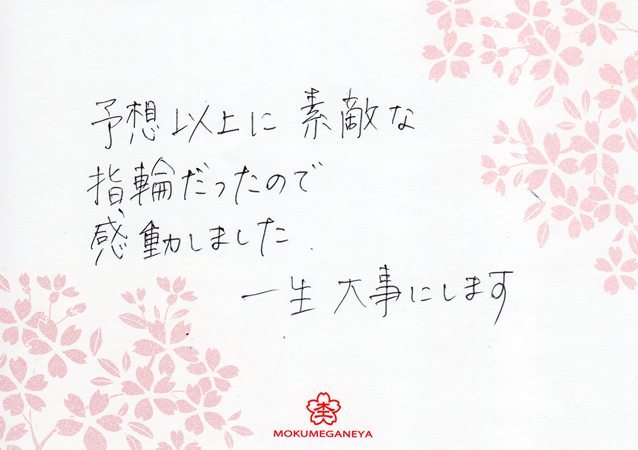 予想以上に 素敵な
指輪だったので
感動しました.
一生 大事にします
MOKUMEGANEYA